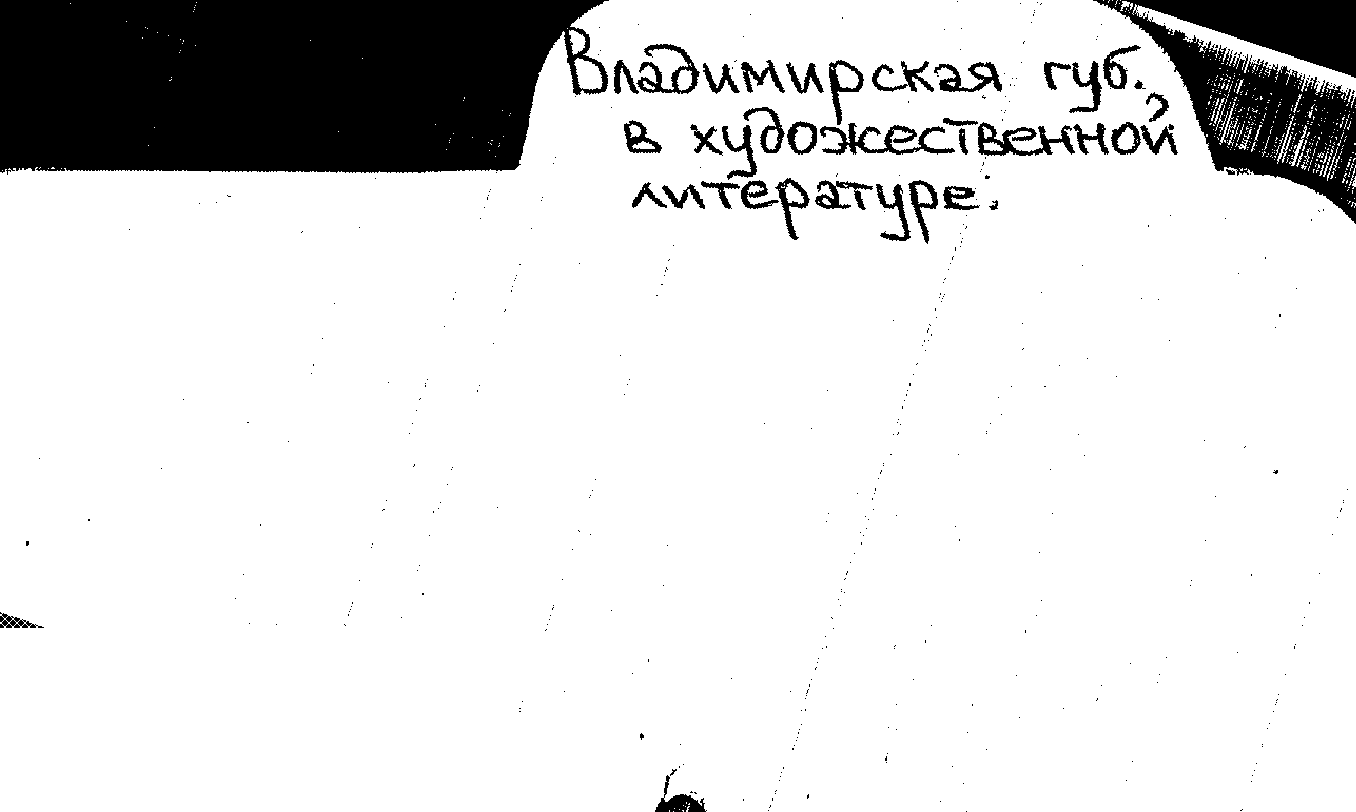 Владимирская губ.
в художественной
литературе.